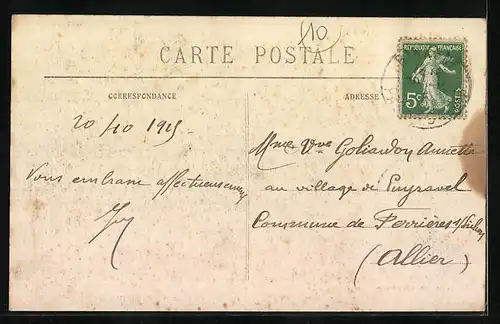 10
CARTE POSTALE
RÉPUBLIQUE FRANÇAISE
5c
POSTES
CORRESPONDANCE
ADRESSE
20/10 1915
Vous embrasse affectueusement
Mme Vve Annette
au village de Puyravel
Commune de Ferrières s/Sichon
(Allier)